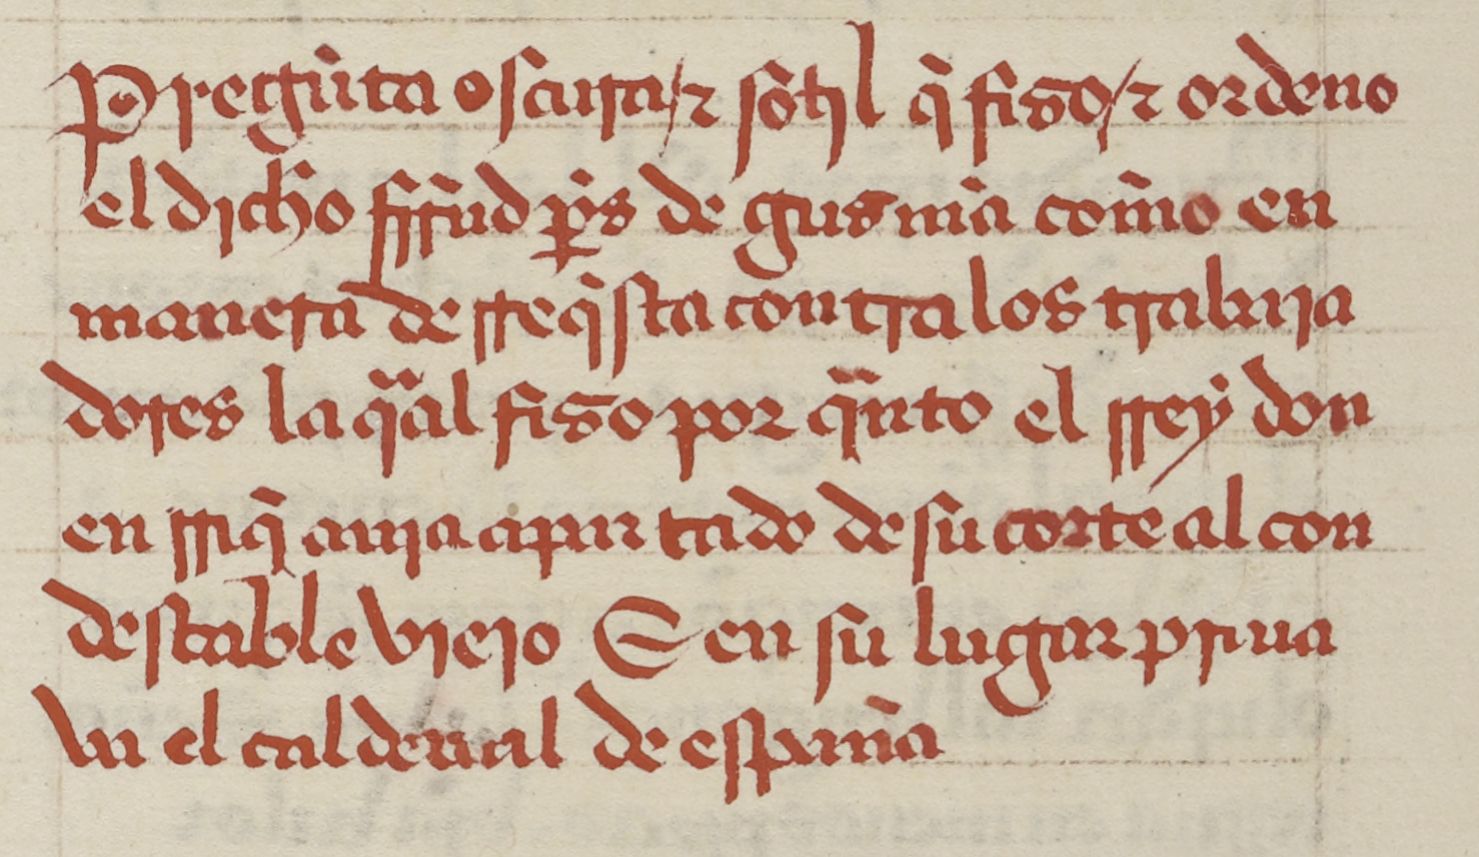 Pregũta oscura / ⁊ sotil q̃ fizo / ⁊ ordeno
el dicho ferrãd prs̃ de gusmã com̃o en
manera de rreq̃sta contra los traba ja
dores la qãl fizo por qãnto el rrey don
en rriq̃ auja apartado de su corte al con
destable viejo E en su lugar priua
ua el caldenal de españa